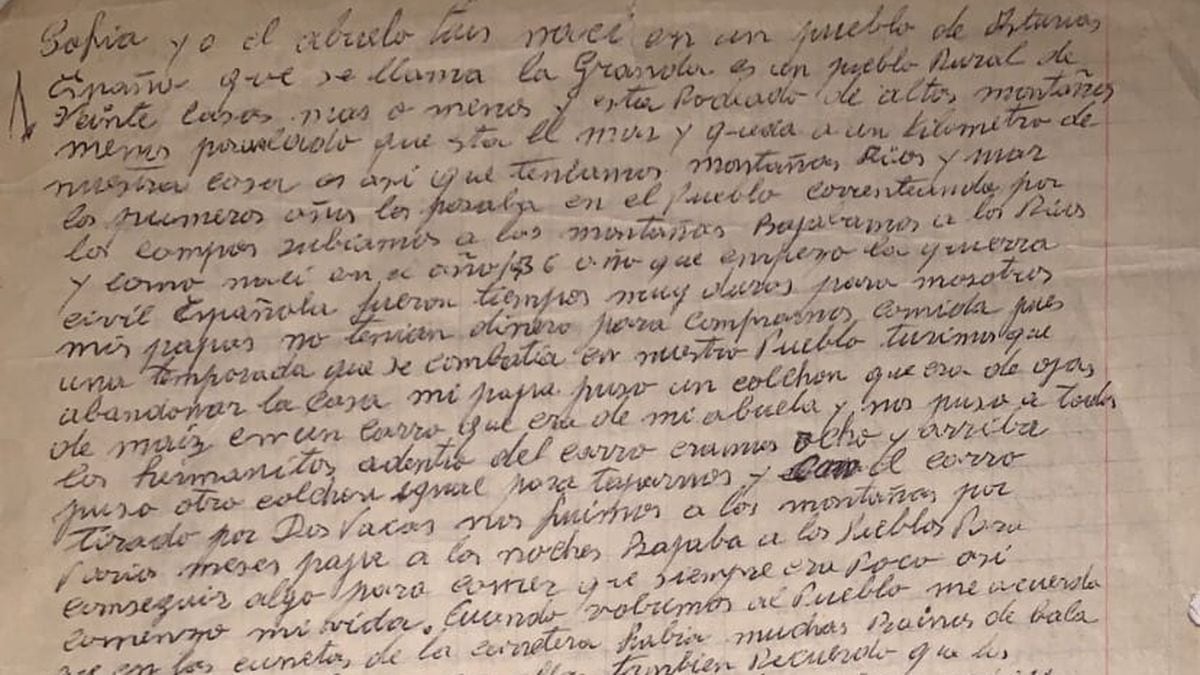 Sofia yo el abuelo Luis naci en un pueblo de Asturias
España que se llama la Granda es un pueblo Rural de
Veinte casas mas o menos y esta Rodeado de altas montañas
menos por el lado que sta el mar y queda a un kilometro de
nuestra casa es asi que teniamos montañas Rios y mar
los primeros años los pasaba en el Pueblo correteando por
los campos subiamos a las montañas Bajabamos a los Rios
y como naci en el año 36 año que empezo la guerra
civil Española fueron tiempos muy duros para nosotros
mis papas no tenian dinero para comprarnos comida pues
una temporada que se combatia en nuestro Pueblo tuvimos que
abandonar la casa mi papa puso un colchon que era de ojas
de maiz en un carro que era de mi abuela y nos puso a todos
los hermanitos adentro del carro eramos ocho y arriba
puso otro colchon igual para taparnos y el carro
tirado por Dos Vacas nos fuimos a las montañas por
Varios meses papa a las noches Bajaba a los Pueblos Para
conseguir algo para comer que siempre era Poco asi
comenzo mi vida. Cuando volvimos al Pueblo me acuerdo
en las cunetas de la carretera Habia muchas de bala
tambien Recuerdo que los